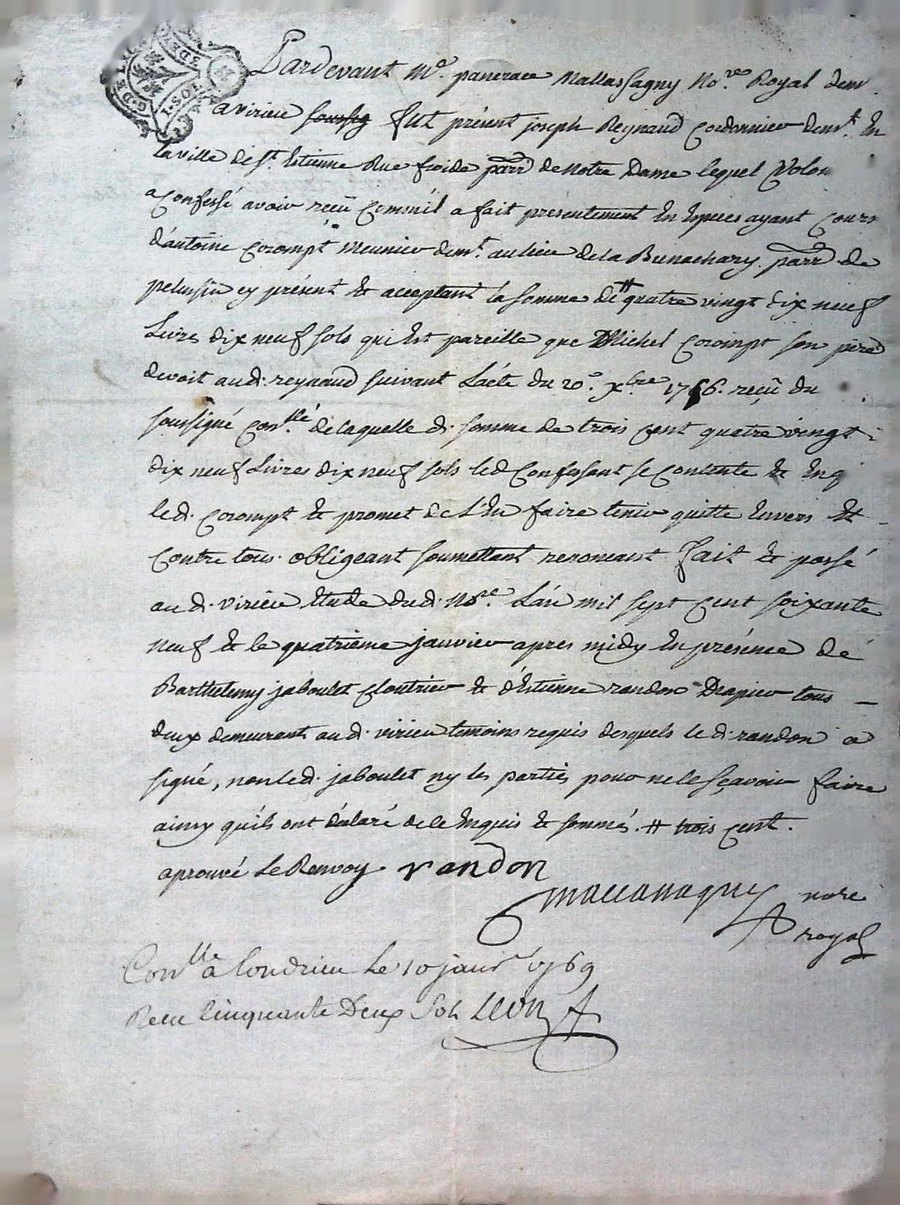 Pardevant Me. panerace Mallassagny No.re Royal dem.
a virieu soussig fut présent joseph Reynaud Cordonnier demt. En
la ville de St. Etienne Rue froide parr de Notre Dame lequel Volon
a Confessé avoir reçû Comme il a fait presentement En Especes ayant Cours
d'antoine Corompt Meunier demt. au lieu de la Bunachary parr de
pelussin cy présent & acceptant la somme de # quatre vingt dix neuf
Livres dix neuf sols qui Est pareille que Michel Corompt son pere
devoit aud. reynaud suivant L'acte du 20e. xbre 1766. reçû du
soussigné Con.llé de laquelle d. somme de trois Cent quatre vingt
dix neuf Livres dix neuf sols led Confessant se Contente & En q
led. Corompt & promet de L'En faire tenir quitte Envers Et
Contre tous. obligeant soumettant renoncant fait & passé
aud. virieu Etude dud. No.re L'an mil sept Cent soixante
neuf & le quatrieme janvier apres midy En présence de
Barthelemy jaboulet Cloutrier & d'Estienne randon Drapier tous
deux demeurant aud. virieu temoins requis desquels le d. randon a
signé, non led. jaboulet ny les parties pour ne le sçavoir faire
ainsy qu'ils ont déclaré de ce Enquis & sommés. # trois Cent.
aprouvé Le Renvoy. randon
mallassagny no.re
royal
Con.lle a Condrieu Le 10 janv.r 1769
Recu Cinquante Deux Sols Leon